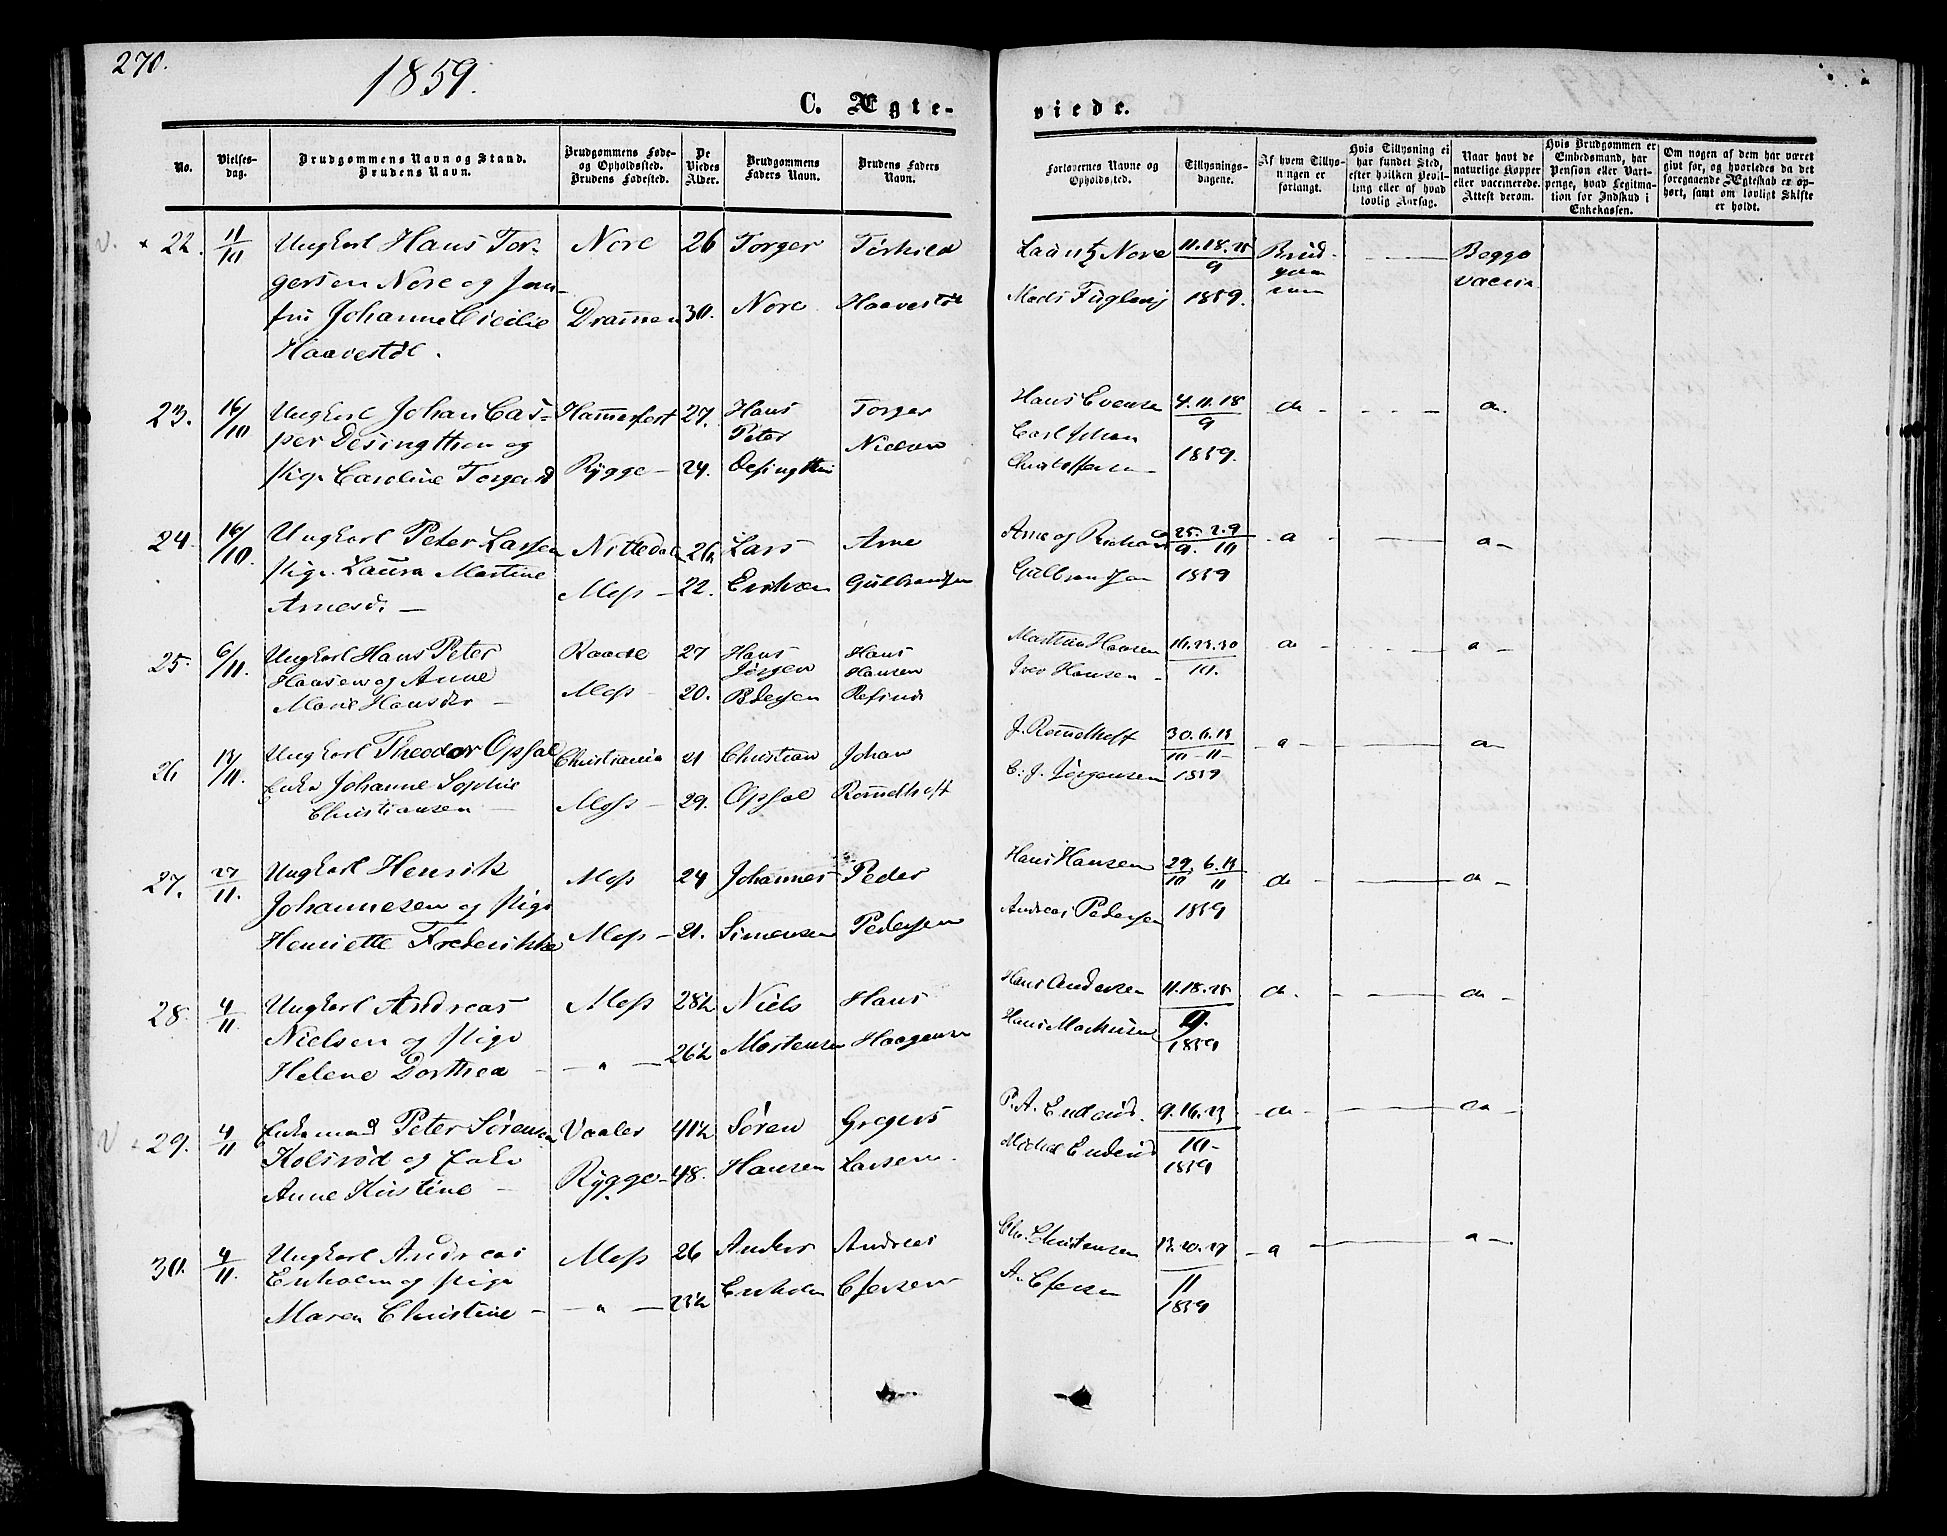 270.
1859.
C. Ægte-
viede.
No.
Vielses-
dag.
Brudgommens Navn og Stand.
Brudens Navn.
Brudgommens Føde-
og Opholdssted.
Brudens Fødested.
De
Viedes
Alder.
Brudgommens
Faders Navn.
Brudens Faders
Navn.
Forlovernes Navne og
Opholdssted.
Tillysnings-
dagene.
Af hvem Tillys-
ningen er
forlangt.
Hvis Tillysning ei
har fundet Sted,
efter hvilken Bevil-
ling eller af hvad
lovlig Aarsag.
Naar havt de
naturlige Kopper
eller vaccinerede.
Attest derom.
Hvis Brudgommen er
Embedsmand, har
Pension eller Vart-
penge, hvad Legitima-
tion for Indskud i
Enkekassen.
Om nogen af dem har været
givt før, og hvorledes da det
foregaaende Ægteskab er op-
hørt, samt om lovligt Skifte
er holdt.
22. 11/10 Ungkarl Hans Tor- Nore 26 Torger
gersen Nore og Jom-
fru Johanne Cicilie Drammen 30. Nore Haavestøl
Haavestøl.
Nore 11.18.25/9 Brud-
Mads 1859. Begge
vaccin
23. 16/10 Ungkarl Johan Cas- Hammerfest 27. Hans Torger
per Desingthun og Peter Nielsen
Pige Caroline Torgersd Rygge 24.
Hans Evensen 4.11.18/9 do
Carl Johan
Christoffersen 1859.
24. 16/10. Ungkarl Peter Larsen Nittedal 26 Lars Arne
Pige Laura Martine Moss 22. Eriksen Gulbrandsen
Arnesd.
Arne og 25. 2.9/9. 10
Gulbrandsen 1859
25. 6/11. Ungkarl Hans Peter Raade 27 Hans Hans
Hansen og Anne Jørgen Hansen
Marie Hansdr Moss 20. Pedersen Refsnes
Hansen 16.23.30/10.
Iver Hansen
26 13/11. Ungkarl Theodor Opsal Christiania 21 Christian Johan
Enke Johanne Sophie
Christiansen Moss 29. Opsal Romdhoft
J. Romdhoft 30.6.13/10-11
C. J. Jørgensen 1859
27. 27/11. Ungkarl Henrik Moss 24 Johannes Peder
Johannesen og Pige
Henriette Frederikke Moss 21. Simensen Pedersen
Hans Hansen 29. 6.13/10 11 do
Andreas Pedersen 1859
28. 4/11 Ungkarl Andreas Moss 28½ Niels Hans
Nielsen og Pige
Helene Dorthea 26½ Mortensen Haagensen
Hans Andersen 11.18.25 do do
Hans 9. 1859
29. 4/11 Enkemand Peter Sørensen Vaaler 41½ Søren Gregers
Kolsrød og Enke
Anne Kirstine Rygge 48. Hansen Larsen
P. A. 9.16.23 do do
10 1859
30. 4/11. Ungkarl Andreas Moss 26 Anders Andreas
Enholm og Pige
Maren Christine 23½ Enholm
Christensen 13.20.27
A. 11 1859